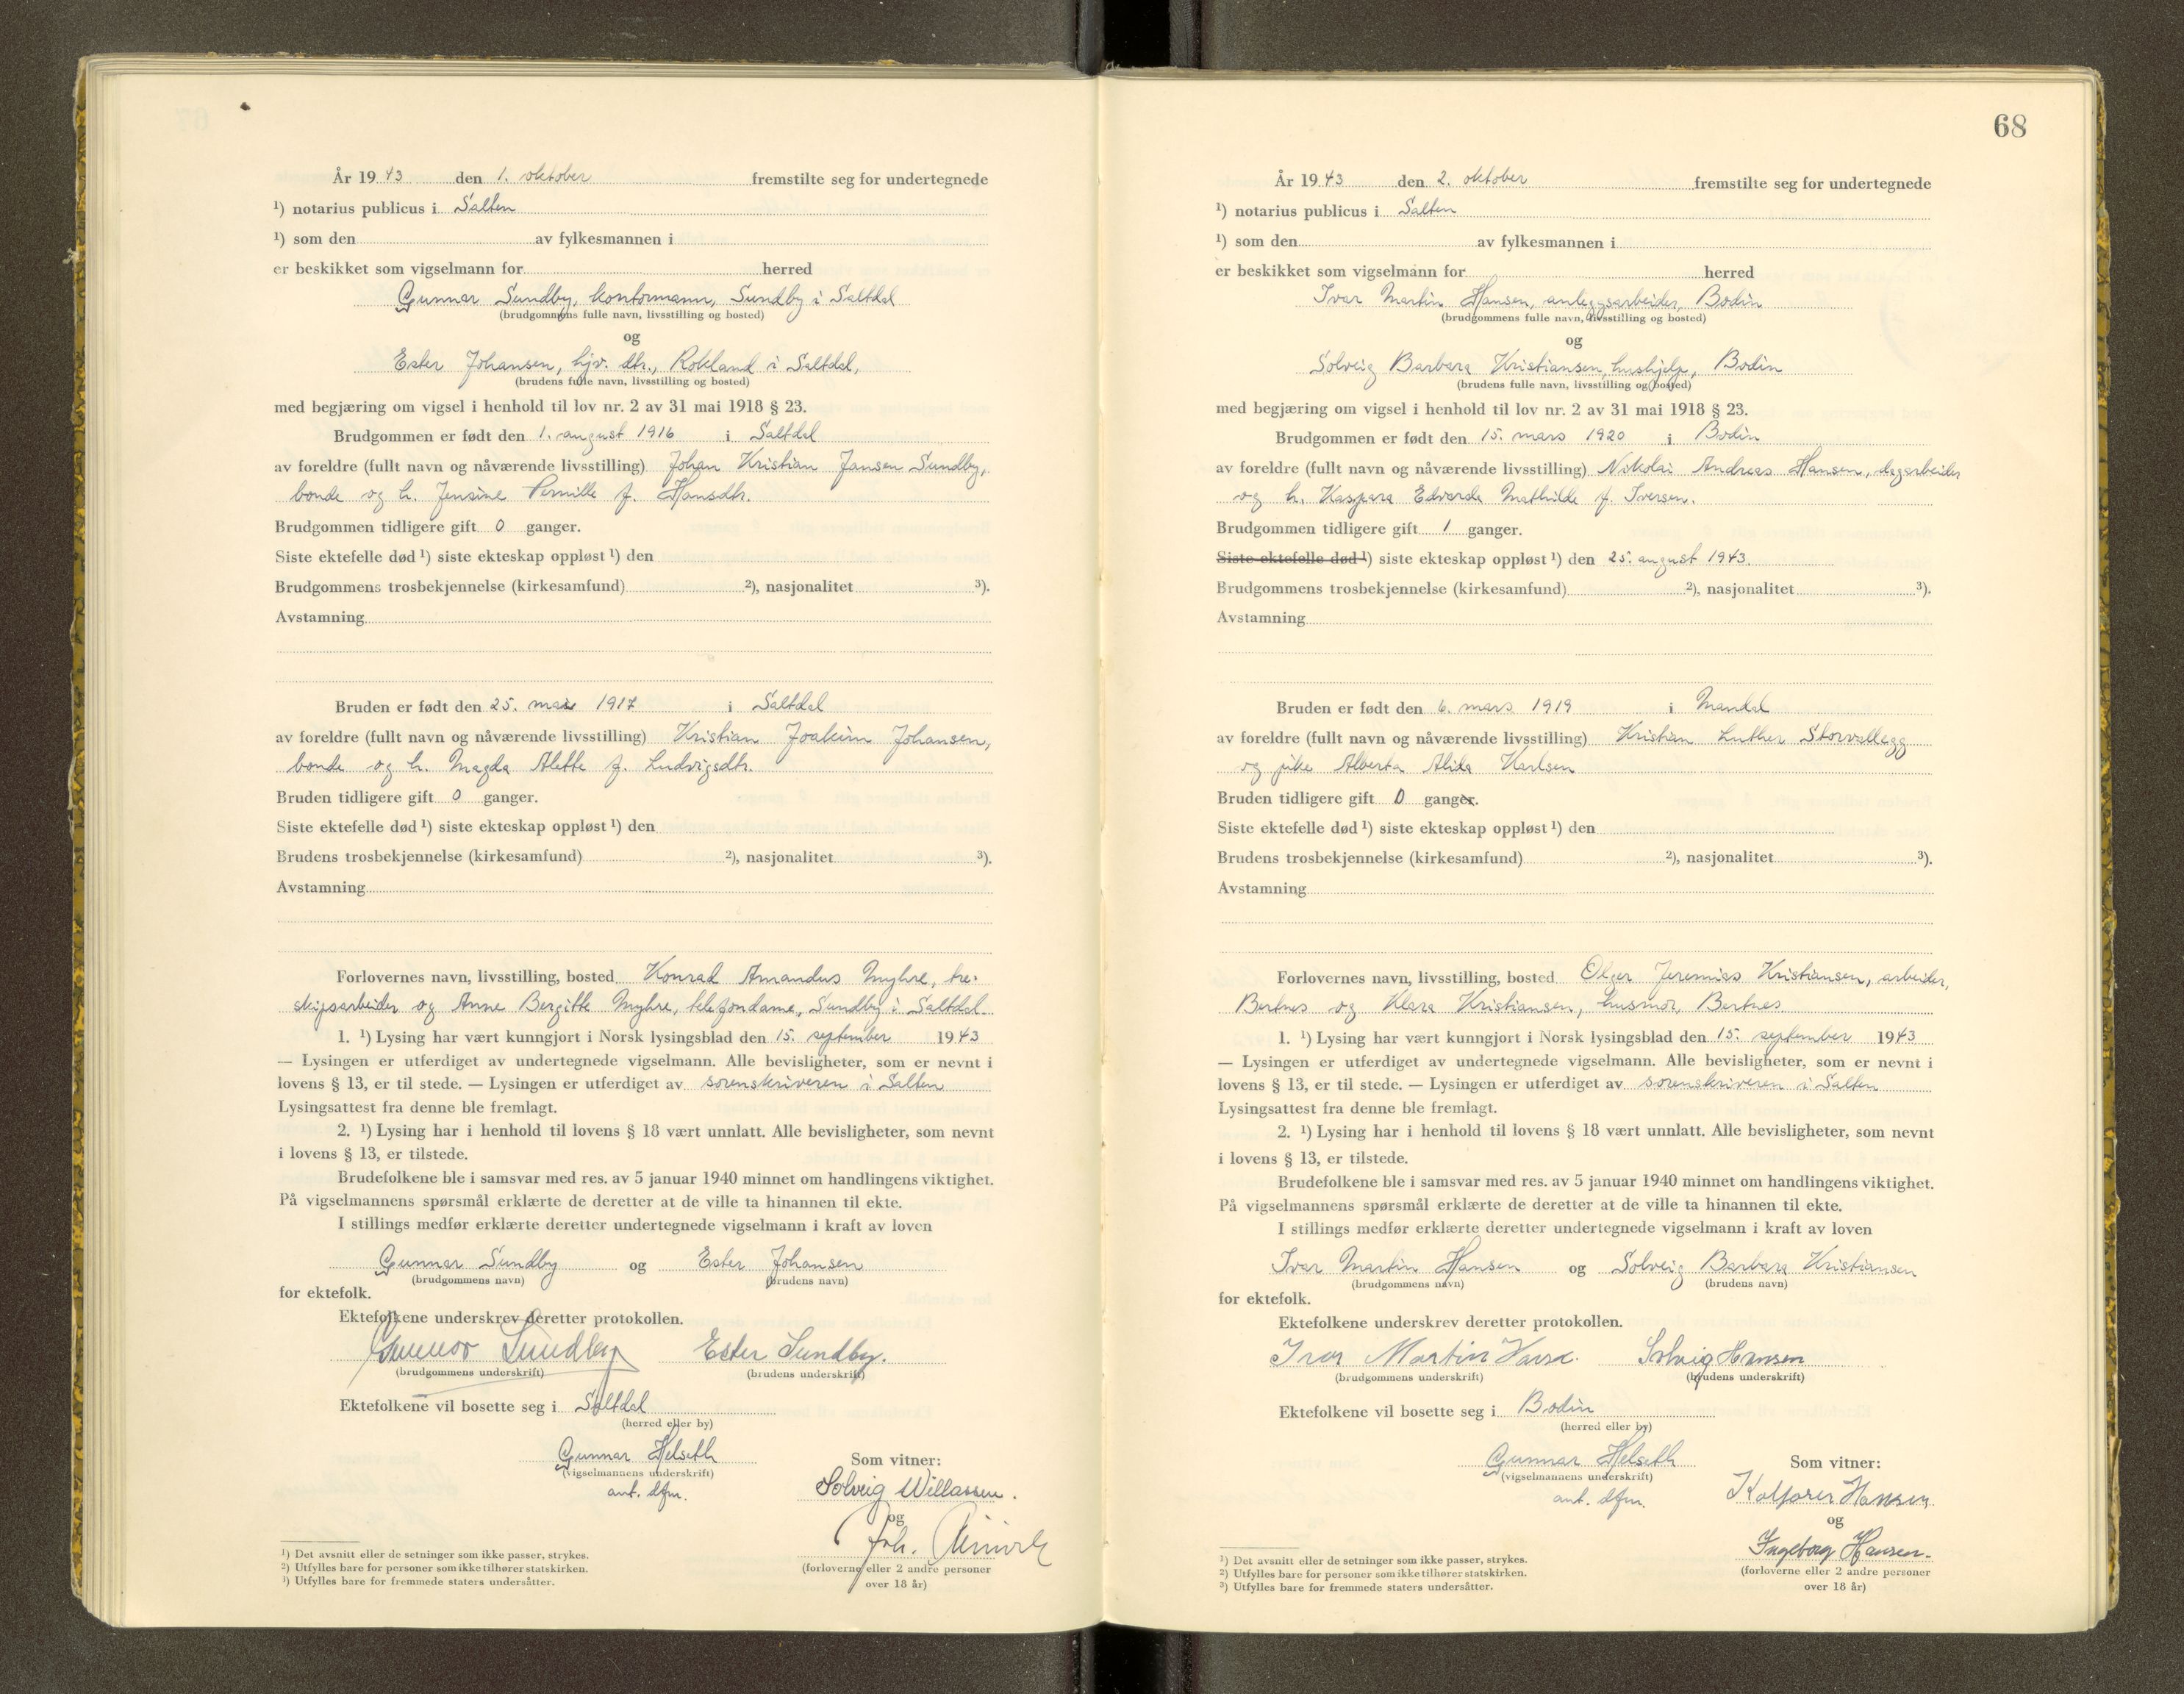 År 1943 den 1. oktober fremstilte seg for undertegnede
¹) notarius publicus i Salten
¹) som den av fylkesmannen i
er beskikket som vigselmann for herred
Gunnar Sundby, kontormann, Sundby i Saltdal
(brudgommens fulle navn, livsstilling og bosted)
og
Ester Johansen, hjv. dtr., Rokland i Saltdal,
(brudens fulle navn, livsstilling og bosted)
med begjæring om vigsel i henhold til lov nr. 2 av 31 mai 1918 § 23.
Brudgommen er født den 1. august 1916 i Saltdal
av foreldre (fullt navn og nåværende livsstilling) Johan Kristian Jansen Sundby,
bonde og h. Jensine Pernille f. Hansdtr.
Brudgommen tidligere gift 0 ganger.
Siste ektefelle død ¹) siste ekteskap oppløst ¹) den
Brudgommens trosbekjennelse (kirkesamfund) ²), nasjonalitet ³).
Avstamning
Bruden er født den 25. mai 1917 i Saltdal
av foreldre (fullt navn og nåværende livsstilling) Kristian Joakim Johansen,
bonde og h. Magda Alette f. Ludvigsdtr.
Bruden tidligere gift 0 ganger.
Siste ektefelle død ¹) siste ekteskap oppløst ¹) den
Brudens trosbekjennelse (kirkesamfund) ²), nasjonalitet ³).
Avstamning
Forlovernes navn, livsstilling, bosted Konrad Amandus Myhre, tre-
skipsarbeider og Anne Bergitte Myhre, telefondame, Sundby i Saltdal
1. ¹) Lysing har vært kunngjort i Norsk lysingsblad den 15. september 1943
— Lysingen er utferdiget av undertegnede vigselmann. Alle bevisligheter, som er nevnt i
lovens § 13, er til stede. — Lysingen er utferdiget av sorenskriveren i Salten
Lysingsattest fra denne ble fremlagt.
2. ¹) Lysing har i henhold til lovens § 18 vært unnlatt. Alle bevisligheter, som nevnt
i lovens § 13, er tilstede.
Brudefolkene ble i samsvar med res. av 5 januar 1940 minnet om handlingens viktighet.
På vigselmannens spørsmål erklærte de deretter at de ville ta hinannen til ekte.
I stillings medfør erklærte deretter undertegnede vigselmann i kraft av loven
Gunnar Sundby og Ester Johansen
(brudgommens navn) (brudens navn)
for ektefolk.
Ektefolkene underskrev deretter protokollen.
Gunnar Sundby Ester Sundby.
(brudgommens underskrift) (brudens underskrift)
Ektefolkene vil bosette seg i Saltdal
(herred eller by)
Gunnar Helseth
(vigselmannens underskrift)
aut. dfm.
Som vitner:
Solveig Willassen.
og
Joh.
(forloverne eller 2 andre personer
over 18 år)
¹) Det avsnitt eller de setninger som ikke passer, strykes.
²) Utfylles bare for personer som ikke tilhører statskirken.
³) Utfylles bare for fremmede staters undersåtter.
68
År 1943 den 2. oktober fremstilte seg for undertegnede
¹) notarius publicus i Salten
¹) som den av fylkesmannen i
er beskikket som vigselmann for herred
Ivar Martin Hansen, anleggsarbeider, Bodin
(brudgommens fulle navn, livsstilling og bosted)
og
Solveig Barbara Kristiansen, hushjelp, Bodin
(brudens fulle navn, livsstilling og bosted)
med begjæring om vigsel i henhold til lov nr. 2 av 31 mai 1918 § 23.
Brudgommen er født den 15. mars 1920 i Bodin
av foreldre (fullt navn og nåværende livsstilling) Nikolai Andreas Hansen, dagarbeider
og h. Kaspara Edvarda Mathilde f. Iversen.
Brudgommen tidligere gift 1 ganger.
Siste ektefelle død ¹) siste ekteskap oppløst ¹) den 25. august 1943.
Brudgommens trosbekjennelse (kirkesamfund) ²), nasjonalitet ³).
Avstamning
Bruden er født den 6. mars 1919 i Mandal
av foreldre (fullt navn og nåværende livsstilling) Kristian Luther Storvallegg
og pike Alberta Alida Karlsen
Bruden tidligere gift 0 ganger.
Siste ektefelle død ¹) siste ekteskap oppløst ¹) den
Brudens trosbekjennelse (kirkesamfund) ²), nasjonalitet ³).
Avstamning
Forlovernes navn, livsstilling, bosted Olger Jeremias Kristiansen, arbeider,
Bertnes og Klara Kristiansen, husmor, Bertnes
1. ¹) Lysing har vært kunngjort i Norsk lysingsblad den 15. september 1943
— Lysingen er utferdiget av undertegnede vigselmann. Alle bevisligheter, som er nevnt i
lovens § 13, er til stede. — Lysingen er utferdiget av sorenskriveren i Salten
Lysingsattest fra denne ble fremlagt.
2. ¹) Lysing har i henhold til lovens § 18 vært unnlatt. Alle bevisligheter, som nevnt
i lovens § 13, er tilstede.
Brudefolkene ble i samsvar med res. av 5 januar 1940 minnet om handlingens viktighet.
På vigselmannens spørsmål erklærte de deretter at de ville ta hinannen til ekte.
I stillings medfør erklærte deretter undertegnede vigselmann i kraft av loven
Ivar Martin Hansen og Solveig Barbara Kristiansen
(brudgommens navn) (brudens navn)
for ektefolk.
Ektefolkene underskrev deretter protokollen.
Ivar Martin Solveig Hansen
(brudgommens underskrift) (brudens underskrift)
Ektefolkene vil bosette seg i Bodin
(herred eller by)
Gunnar Helseth
(vigselmannens underskrift)
aut. dfm.
Som vitner:
Hansen
og
Ingeborg Hansen.
(forloverne eller 2 andre personer
over 18 år)
¹) Det avsnitt eller de setninger som ikke passer, strykes.
²) Utfylles bare for personer som ikke tilhører statskirken.
³) Utfylles bare for fremmede staters undersåtter.